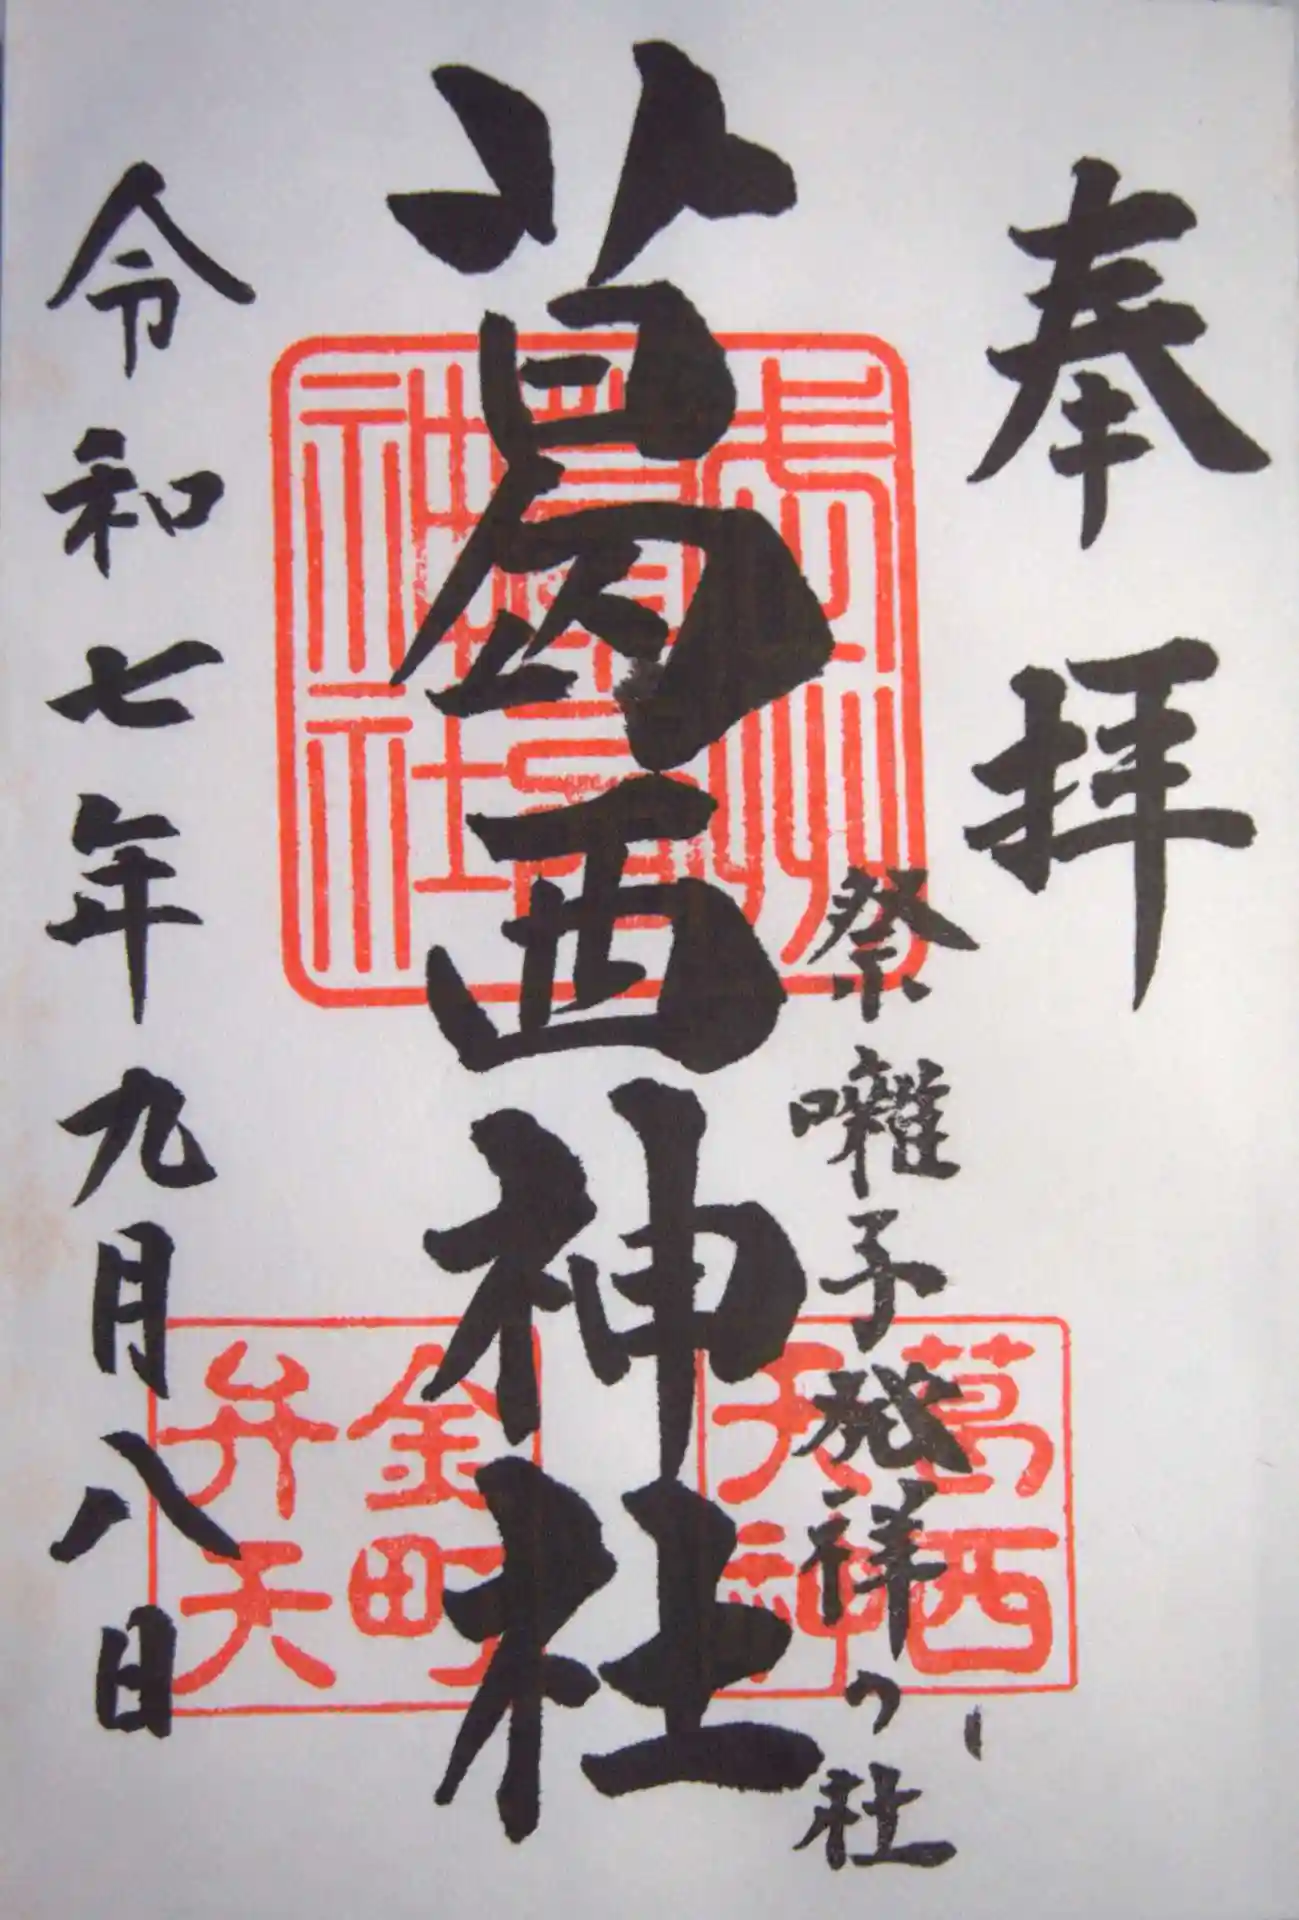 奉拝
祭囃子発祥の社
葛西神社
令和七年九月八日
葛西
天神
金町
弁天
神社